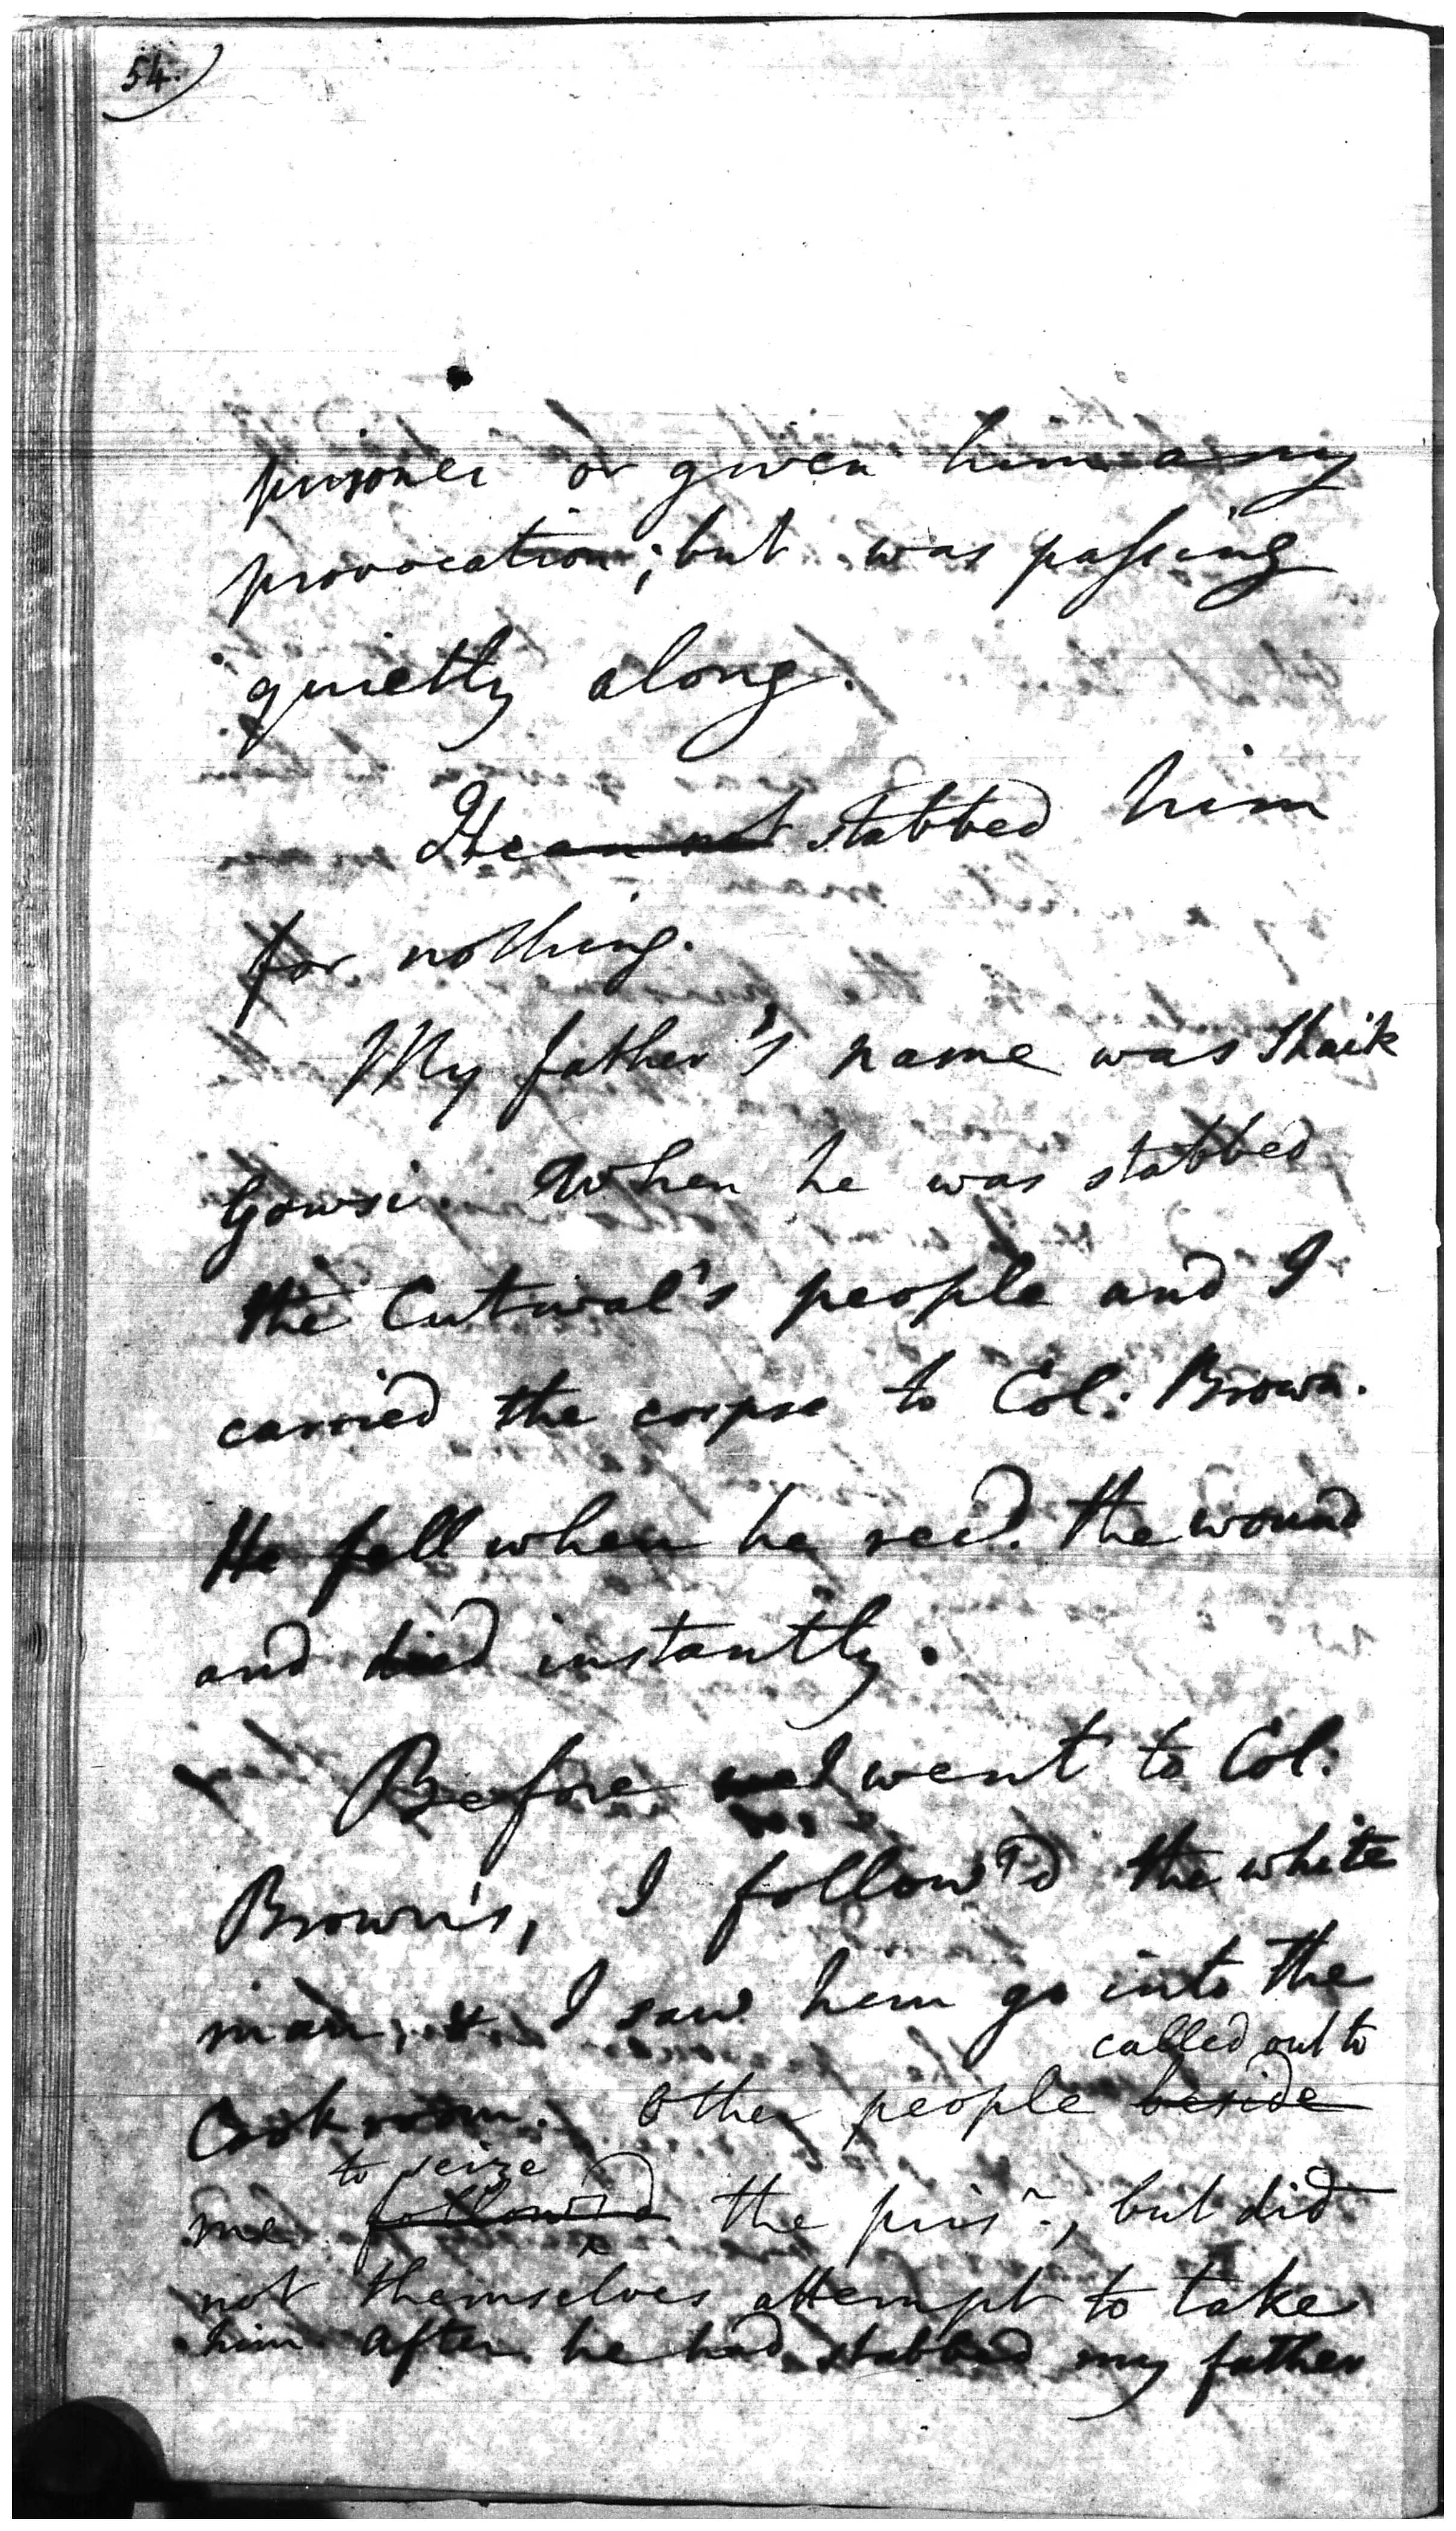 54.
prisoner or given him any
provocation; but was passing
quietly along.
He can not stabbed him
for nothing.
My father's name was Shaik
Gowsi. When he was stabbed
the Cutwal's people and I
carried the corpse to Col: Brown.
He fell when he recd. the wound
and died instantly.
Before we I went to Col:
Brown's, I follow'd the white
man, & I saw him go into the
called out to
Cookroom. Other people beside
to seize
me follow'd the pris~, but did
not themselves attempt to take
him after he had stabbed my father